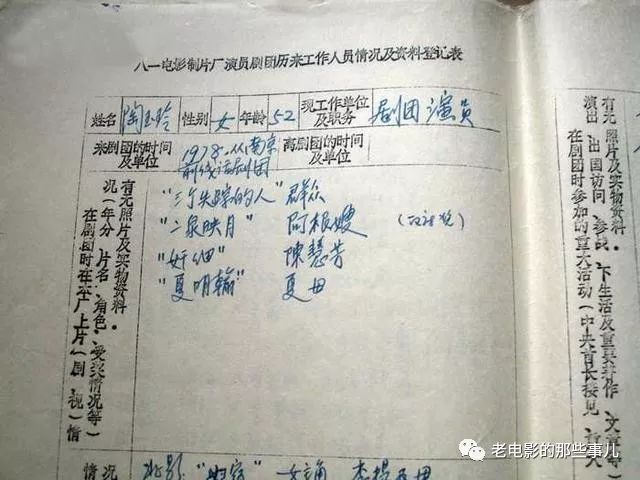 八一电影制片厂演员剧团历来工作人员情况及资料登记表
姓名 陶玉玲 性别 女 年龄 52 现工作单位及职务 剧团演员
来剧团的时间及单位 1978.从南京前线话剧团 离剧团的时间及单位
在剧团时在本厂上片(剧、视)情
况(年分、片名、角色、受奖情况等)
有无照片及实物资料。
"三个失踪的人" 群众
"二泉映月" 阿根嫂
"奸细" 陳慧芳
"夏明翰" 夏母
在剧团时参加的重大活动(中央首长接见、
演出、出国访问、参战、下生活及重要著作、文章等)
有无照片及实物资料
情况
女主角
老电影的那些事儿